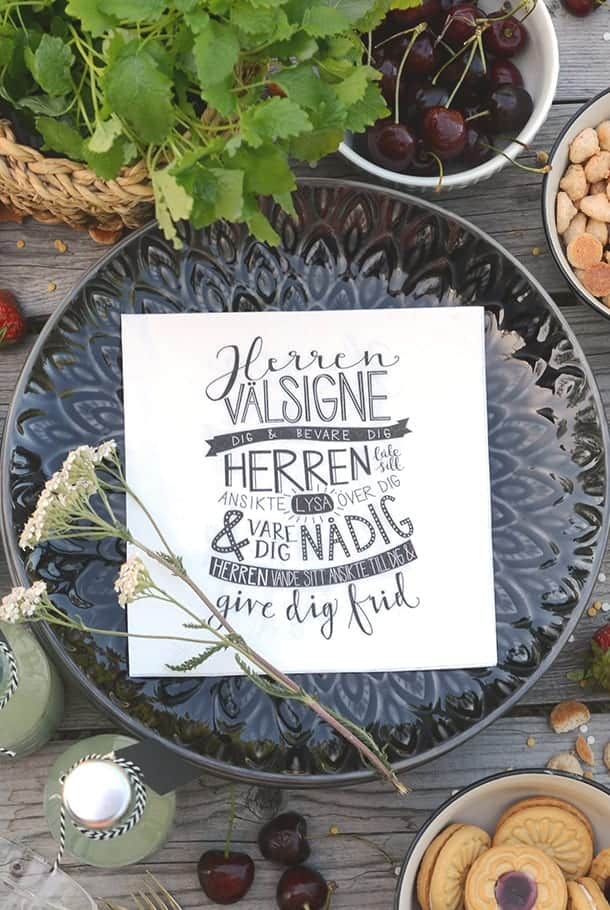 Herren
VÄLSIGNE
DIG & BEVARE DIG
HERREN late sitt
ANSIKTE LYSA ÖVER DIG
& VARE DIG NÅDIG
HERREN VÄNDE SITT ANSIKTE TILL DIG &
give dig frid